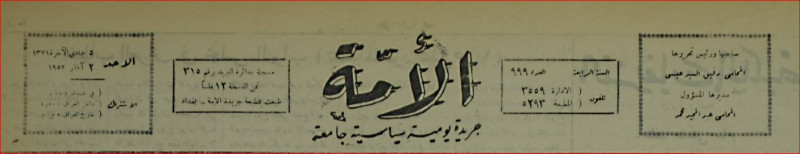 صاحبها ورئيس تحريرها
المحامي رفيق السيد عيسى
مديرها المسؤول
المحامي عبد المجيد محمد
السنة الرابعة العدد ٩٩٩
تلفون ( الادارة ٣٥٥٩
( المطبعة ٥٢٩٣
الأمّة
جريدة يومية سياسية جامعة
مسجلة بدائرة البريد برقم ٣١٥
ثمن النسخة ١٢ فلساً
طبعت بمطبعة جريدة الامة - بغداد
الاحد
٥ جمادي الآخرة ١٣٧١
٢ آذار ١٩٥٢
الاشتراك